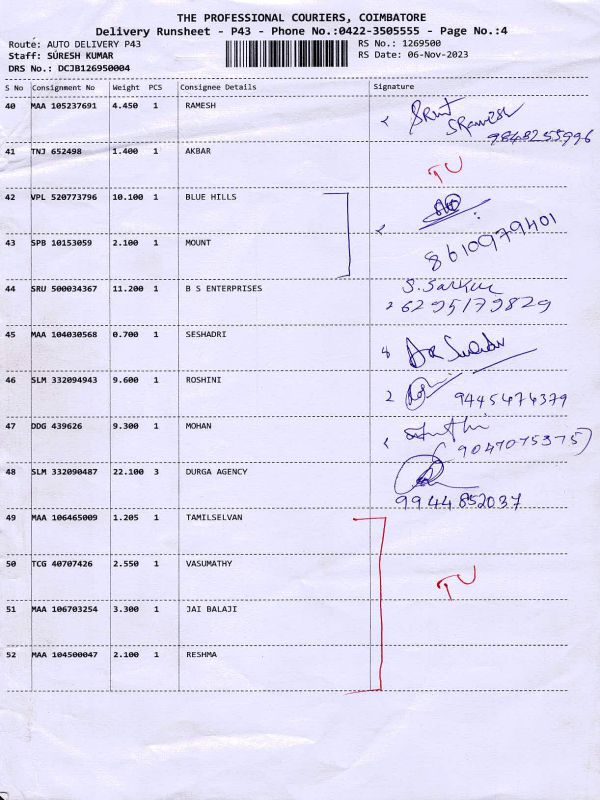 THE PROFESSIONAL COURIERS, COIMBATORE
Delivery Runsheet - P43 - Phone No.:0422-3505555 - Page No.:4
Route: AUTO DELIVERY P43 RS No.: 1269500
Staff: SURESH KUMAR RS Date: 06-Nov-2023
DRS No.: DCJB126950004
S No Consignment No Weight PCS Consignee Details Signature
40 MAA 105237691 4.450 1 RAMESH
9848255996
41 TNJ 652498 1.400 1 AKBAR TU
42 VPL 520773796 10.100 1 BLUE HILLS
43 SPB 10153059 2.100 1 MOUNT 8610979401
44 SRU 500034367 11.200 1 B S ENTERPRISES S. Sarkar
6295179829
45 MAA 104030568 0.700 1 SESHADRI
46 SLM 332094943 9.600 1 ROSHINI 9445474379
47 DDG 439626 9.300 1 MOHAN
9047075375
48 SLM 332090487 22.100 3 DURGA AGENCY
9944852037
49 MAA 106465009 1.205 1 TAMILSELVAN
50 TCG 40707426 2.550 1 VASUMATHY TU
51 MAA 106703254 3.300 1 JAI BALAJI
52 MAA 104500047 2.100 1 RESHMA